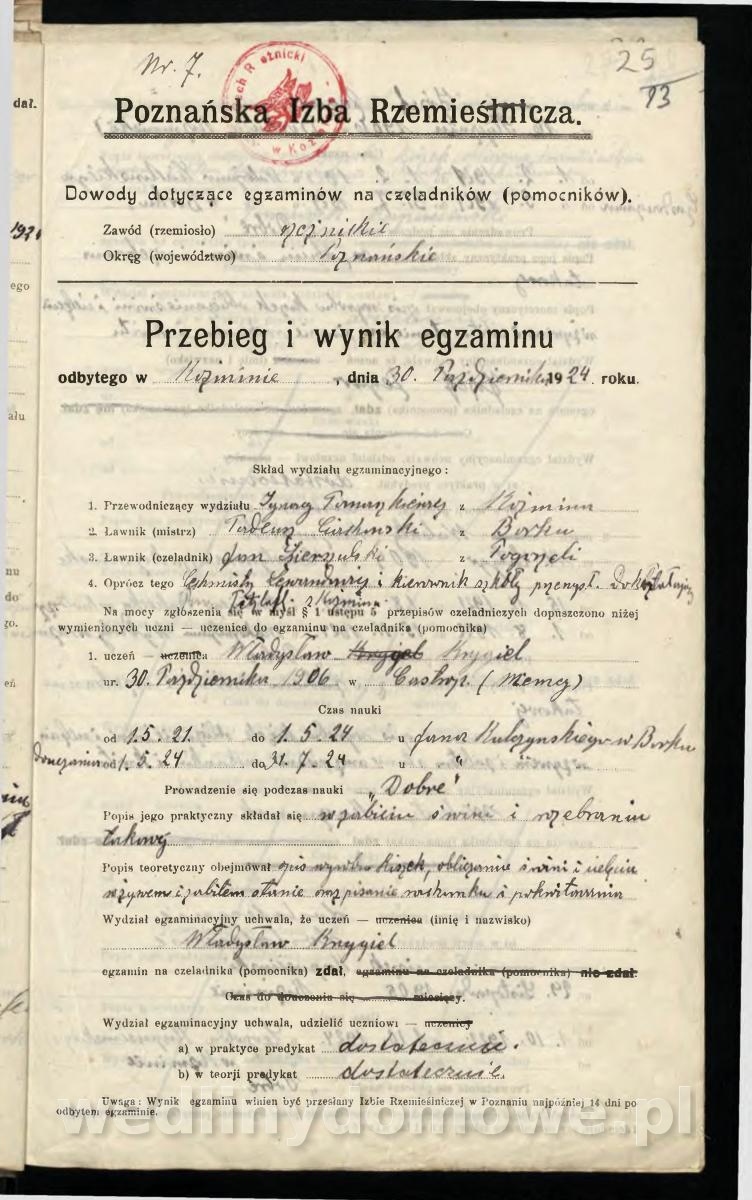 Nr. 7.
Cech Rzeźnicki w Koźminie
25
13
Poznańska Izba Rzemieślnicza.
Dowody dotyczące egzaminów na czeladników (pomocników).
Zawód (rzemiosło) rzeźnickie
Okręg (województwo) Poznańskie
Przebieg i wynik egzaminu
odbytego w Koźminie, dnia 30. Październik 1924 roku.
Skład wydziału egzaminacyjnego:
1. Przewodniczący wydziału Ignacy z Koźmina
2. Ławnik (mistrz) Tadeusz z Borku
3. Ławnik (czeladnik) Jan z Pogorzeli
4. Oprócz tego i kierownik szkoły przemysł. Dokształcając
z Koźmina
Na mocy zgłoszenia się w myśl § 1 ustępu 5 przepisów czeladniczych dopuszczono niżej
wymienionych uczni — uczenice do egzaminu na czeladnika (pomocnika)
1. uczeń — uczenica Władysław Krygiel Krygiel
ur. 30. Października 1906 w Castrop. (Niemcy)
Czas nauki
od 1.5.21. do 1.5.24 u Jana Kulczynskiego w Borku
douczania od 1.5.24 do 31.7.24 u " "
Prowadzenie się podczas nauki „Dobre"
Popis jego praktyczny składał się w zabiciu świni i rozebraniu
takowej
Popis teoretyczny obejmował opis wyrobu kiszek, obliczanie świni i cielęcia
w żywem i zabitem stanie oraz pisanie rachunku i pokwitowania
Wydział egzaminacyjny uchwala, że uczeń — uczenica (imię i nazwisko)
Władysław Krygiel
egzamin na czeladnika (pomocnika) zdał, egzaminu na czeladnika (pomocnika) nie zdał.
Czas do douczenia się miesięcy.
Wydział egzaminacyjny uchwala, udzielić uczniowi — uczenicy
a) w praktyce predykat dostatecznie.
b) w teorji predykat dostatecznie.
Uwaga: Wynik egzaminu winien być przesłany Izbie Rzemieślniczej w Poznaniu najpóźniej 14 dni po
odbytem egzaminie.
wedlinydomowe.pl